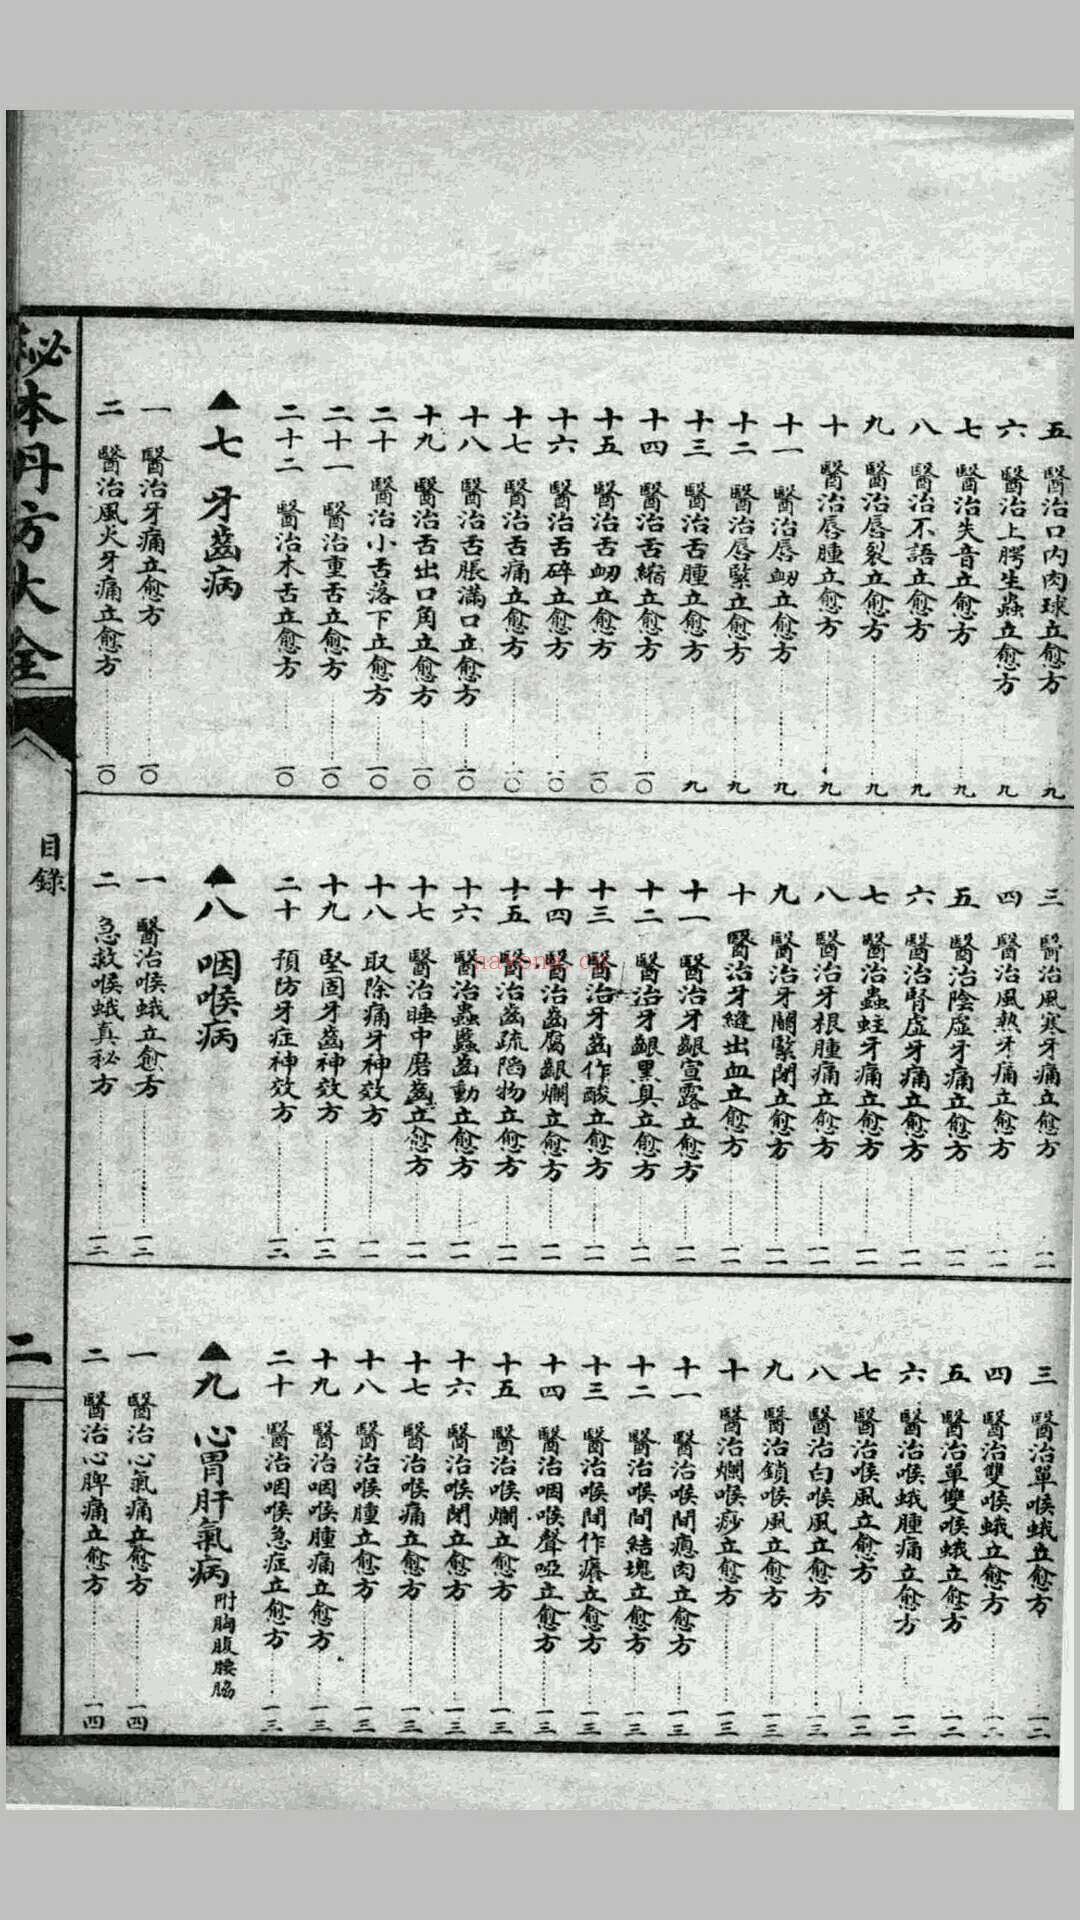 五 醫治口内肉球立愈方 九
六 醫治上腭生蟲立愈方 九
七 醫治失音立愈方 九
八 醫治不語立愈方 九
九 醫治唇裂立愈方 九
十 醫治唇腫立愈方 九
十一 醫治唇衂立愈方 九
十二 醫治唇緊立愈方 九
十三 醫治舌腫立愈方 九
十四 醫治舌縮立愈方 一〇
十五 醫治舌衂立愈方 一〇
十六 醫治舌碎立愈方 一〇
十七 醫治舌痛立愈方 一〇
十八 醫治舌脹滿口立愈方 一〇
十九 醫治舌出口角立愈方 一〇
二十 醫治小舌落下立愈方 一〇
二十一 醫治重舌立愈方 一〇
二十二 醫治木舌立愈方 一〇
▲七 牙齒病
一 醫治牙痛立愈方 一〇
二 醫治風火牙痛立愈方 一〇
三 醫治風寒牙痛立愈方 一一
四 醫治風熱牙痛立愈方 一一
五 醫治陰虛牙痛立愈方 一一
六 醫治腎虛牙痛立愈方 一一
七 醫治蟲蛀牙痛立愈方 一一
八 醫治牙根腫痛立愈方 一一
九 醫治牙關緊閉立愈方 一一
十 醫治牙縫出血立愈方 一一
十一 醫治牙齦宣露立愈方 一一
十二 醫治牙齦黑臭立愈方 一一
十三 醫治牙齒作酸立愈方 一一
十四 醫治齒腐齦爛立愈方 一一
十五 醫治齒疏陷物立愈方 一一
十六 醫治蟲蠶齒動立愈方 一一
十七 醫治睡中磨齒立愈方 一一
十八 取除痛牙神效方 一一
十九 堅固牙齒神效方 一二
二十 預防牙症神效方 一二
▲八 咽喉病
一 醫治喉蛾立愈方 一二
二 急救喉蛾真秘方 一二
三 醫治單喉蛾立愈方 一二
四 醫治雙喉蛾立愈方 一二
五 醫治單雙喉蛾立愈方 一二
六 醫治喉蛾腫痛立愈方 一二
七 醫治喉風立愈方 一二
八 醫治白喉風立愈方 一三
九 醫治鎖喉風立愈方 一三
十 醫治爛喉痧立愈方 一三
十一 醫治喉間瘜肉立愈方 一三
十二 醫治喉間結塊立愈方 一三
十三 醫治喉間作癢立愈方 一三
十四 醫治咽喉聲啞立愈方 一三
十五 醫治喉爛立愈方 一三
十六 醫治喉閉立愈方 一三
十七 醫治喉痛立愈方 一三
十八 醫治喉腫立愈方 一三
十九 醫治咽喉腫痛立愈方 一三
二十 醫治咽喉急症立愈方 一三
▲九 心胃肝氣病 附胸腹腰脇
一 醫治心氣痛立愈方 一四
二 醫治心脾痛立愈方 一四
秘本丹方大全
目錄
二